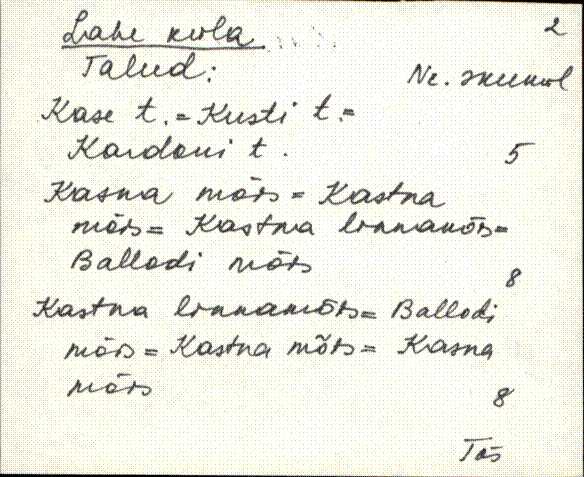 Lahe küla 2
Talud:
Ne. snumol
Kase t. = Kusti t. =
Kardoni t. 5
Kasna mõis = Kastna
mõis = Kastna linnamõis =
Ballodi mõis 8
Kastna linnamõis = Ballodi
mõis = Kastna mõis = Kasna
mõis 8
Tõs